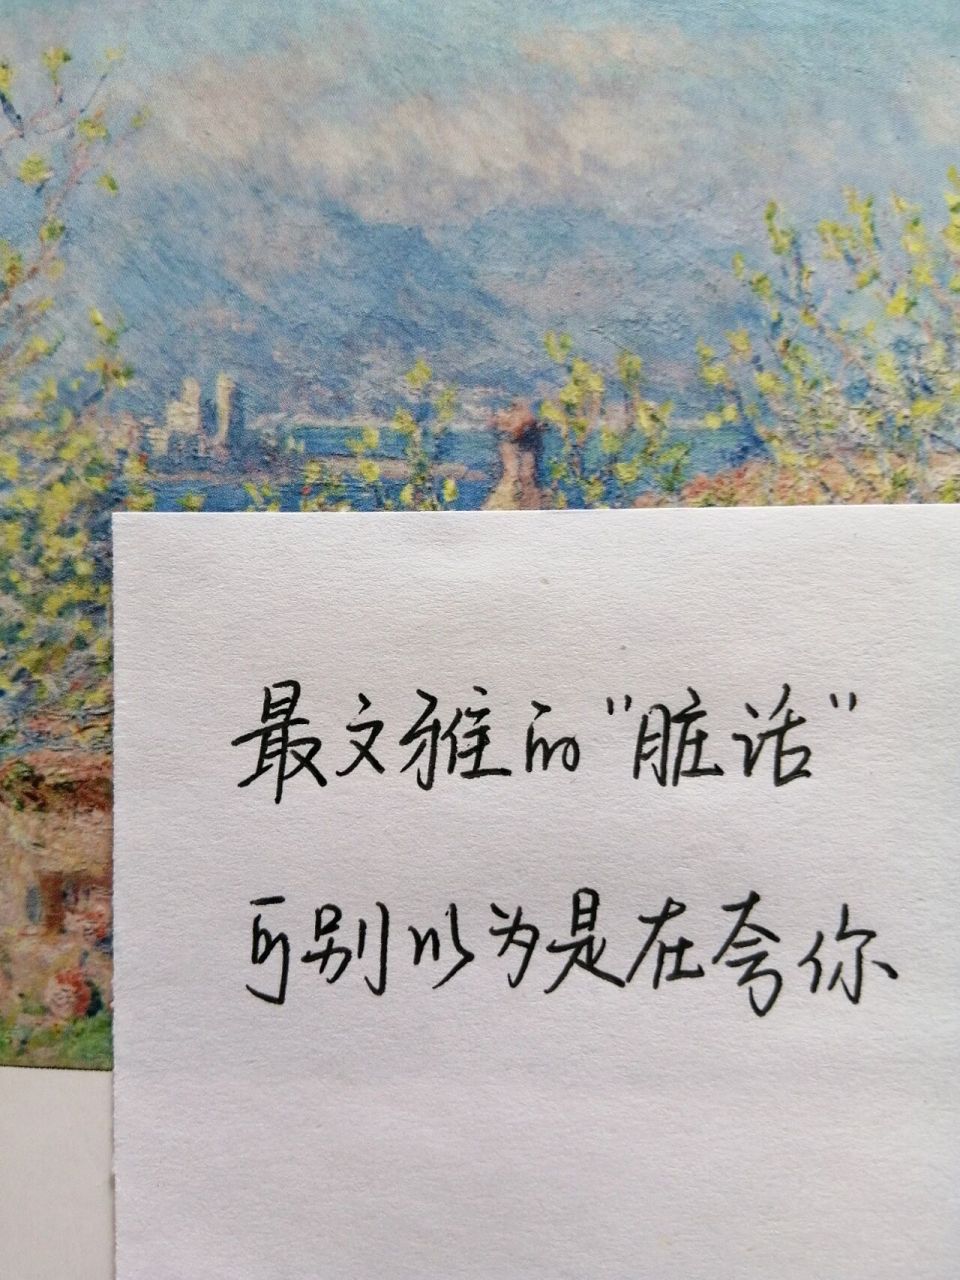 最文雅的"脏话"
可别以为是在夸你